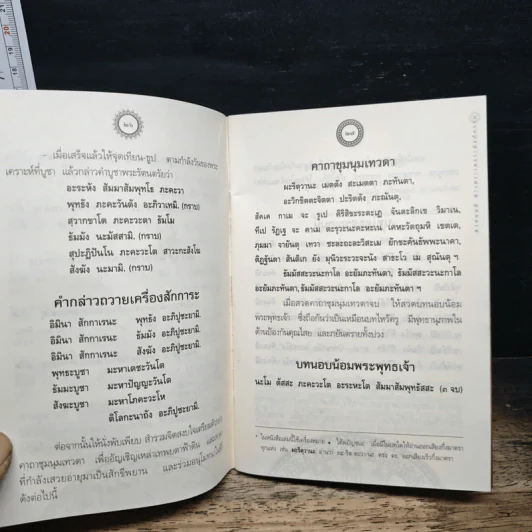 ๒๖
เมื่อเสร็จแล้วให้จุดเทียน-ธูป ตามกำลังวันของพระ
เคราะห์ที่บูชา แล้วกล่าวคำบูชาพระรัตนตรัยว่า
อะระหัง สัมมาสัมพุทโธ ภะคะวา
พุทธัง ภะคะวันตัง อะภิวาเทมิ. (กราบ)
สุวากขาโต ภะคะวะตา ธัมโม
ธัมมัง นะมัสสามิ. (กราบ)
สุปะฏิปันโน ภะคะวะโต สาวะกะสังโฆ
สังฆัง นะมามิ. (กราบ)
คำกล่าวถวายเครื่องสักการะ
อิมินา สักกาเรนะ พุทธัง อะภิปูชะยามิ.
อิมินา สักกาเรนะ ธัมมัง อะภิปูชะยามิ.
อิมินา สักกาเรนะ สังฆัง อะภิปูชะยามิ.
พุทธะบูชา มะหาเตชะวันโต
ธัมมะบูชา มะหาปัญญะวันโต
สังฆะบูชา มะหาโภคะวะโห
ติโลกะนาถัง อะภิปูชะยามิ.
ต่อจากนั้นให้นั่งพับเพียบ สำรวมจิตสงบใจเตรียมตัวสวด
คาถาชุมนุมเทวดา เพื่ออัญเชิญเหล่าเทพยดาฟ้าดิน
ที่กำลังเสวยอายุมาเป็นสักขีพยาน และร่วมอนุโมทนา
ดังต่อไปนี้
๒๗
คาถาชุมนุมเทวดา
ผะริตวานะ เมตตัง สะเมตตา ภะทันตา,
อะวิกขิตตะจิตตา ปะริตตัง ภะณันตุ.
สัคเค กาเม จะ รูเป คิริสิขะระตะเฏ จันตะลิกเข วิมาเน,
ทีเป รัฏเฐ จะ คาเม ตะรุวะนะคะหะเน เคหะวัตถุมหิ เขตเต,
ภุมมา จายันตุ เทวา ชะละถะละวิสะเม ยักขะคันธัพพะนาคา,
ติฏฐันตา สันติเก ยัง มุนิวะระวะจะนัง สาธะโว เม สุณันตุ ฯ
ธัมมัสสะวะนะกาโล อะยัมภะทันตา, ธัมมัสสะวะนะกาโล
อะยัมภะทันตา, ธัมมัสสะวะนะกาโล อะยัมภะทันตา ฯ
เมื่อสวดคาถาชุมนุมเทวดาจบ ให้สวดบทนอบน้อม
พระพุทธเจ้า ซึ่งถือกันว่าเป็นเหมือนบทไหว้ครู มีพุทธานุภาพใน
ด้านป้องกันคุณไสย และภยันตรายทั้งปวง
บทนอบน้อมพระพุทธเจ้า
นะโม ตัสสะ ภะคะวะโต อะระหะโต สัมมาสัมพุทธัสสะ (๓ จบ)